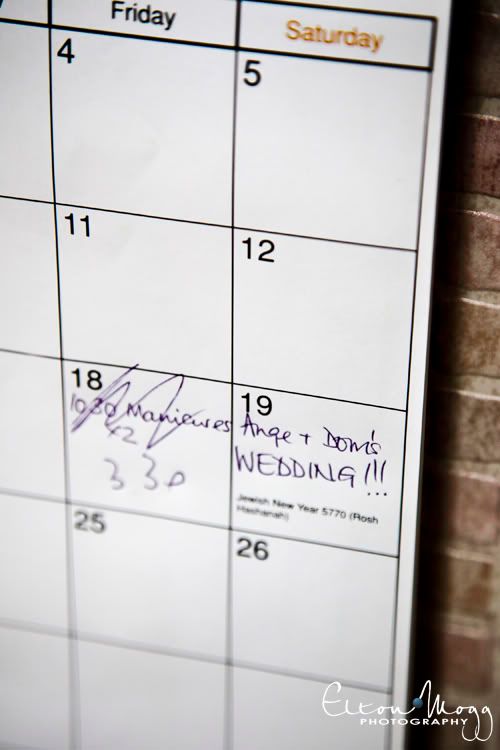 Friday
Saturday
4
5
11
12
18
1030 Manicures
x2
3 30
19
Ange + Dom's
WEDDING!!!
Jewish New Year 5770 (Rosh
Hashanah)
25
26
Elton Mogg
PHOTOGRAPHY